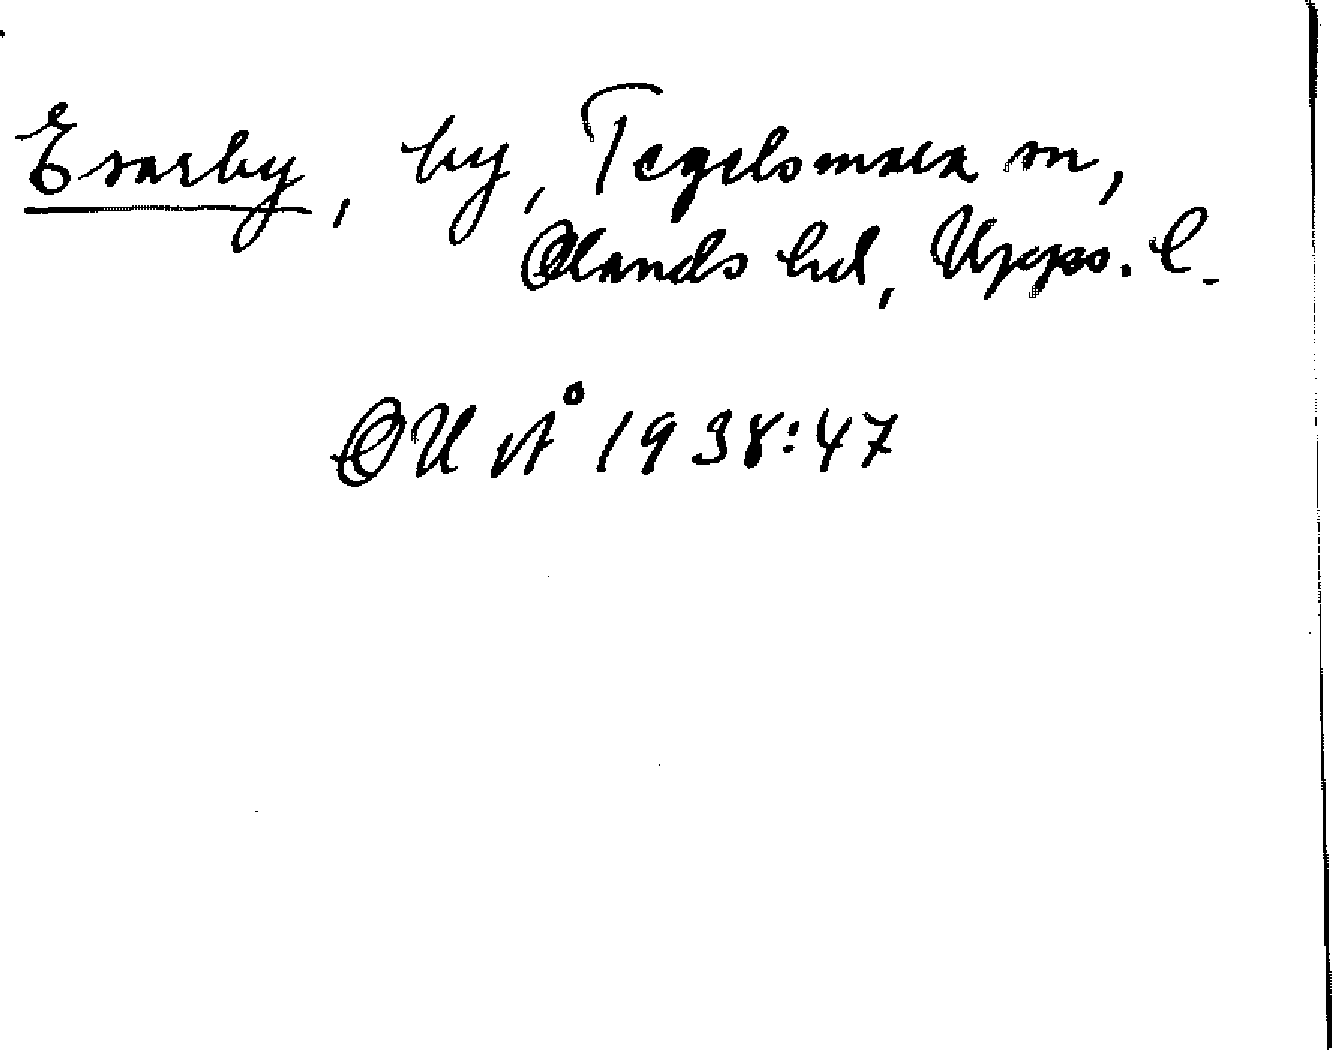 Esarby, by, Tegelsmora sn,
Olands hd, Upps. l.
OUÅ 1938:47